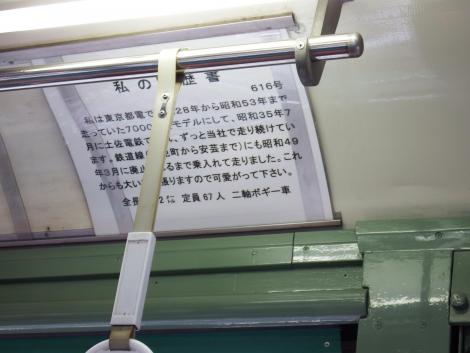 私の 歴書
616号
私は東京都電で 28年から昭和53年まで
走っていた7000 モデルにして、昭和35年7
月に土佐電鉄で ん、ずっと当社で走り続けてい
ます。鉄道線( 町から安芸まで)にも昭和49
年3月に廃止 るまで乗入れて走りました。これ
からも大い 張りますので可愛がって下さい。
全長 2 定員67人 二軸ボギー車